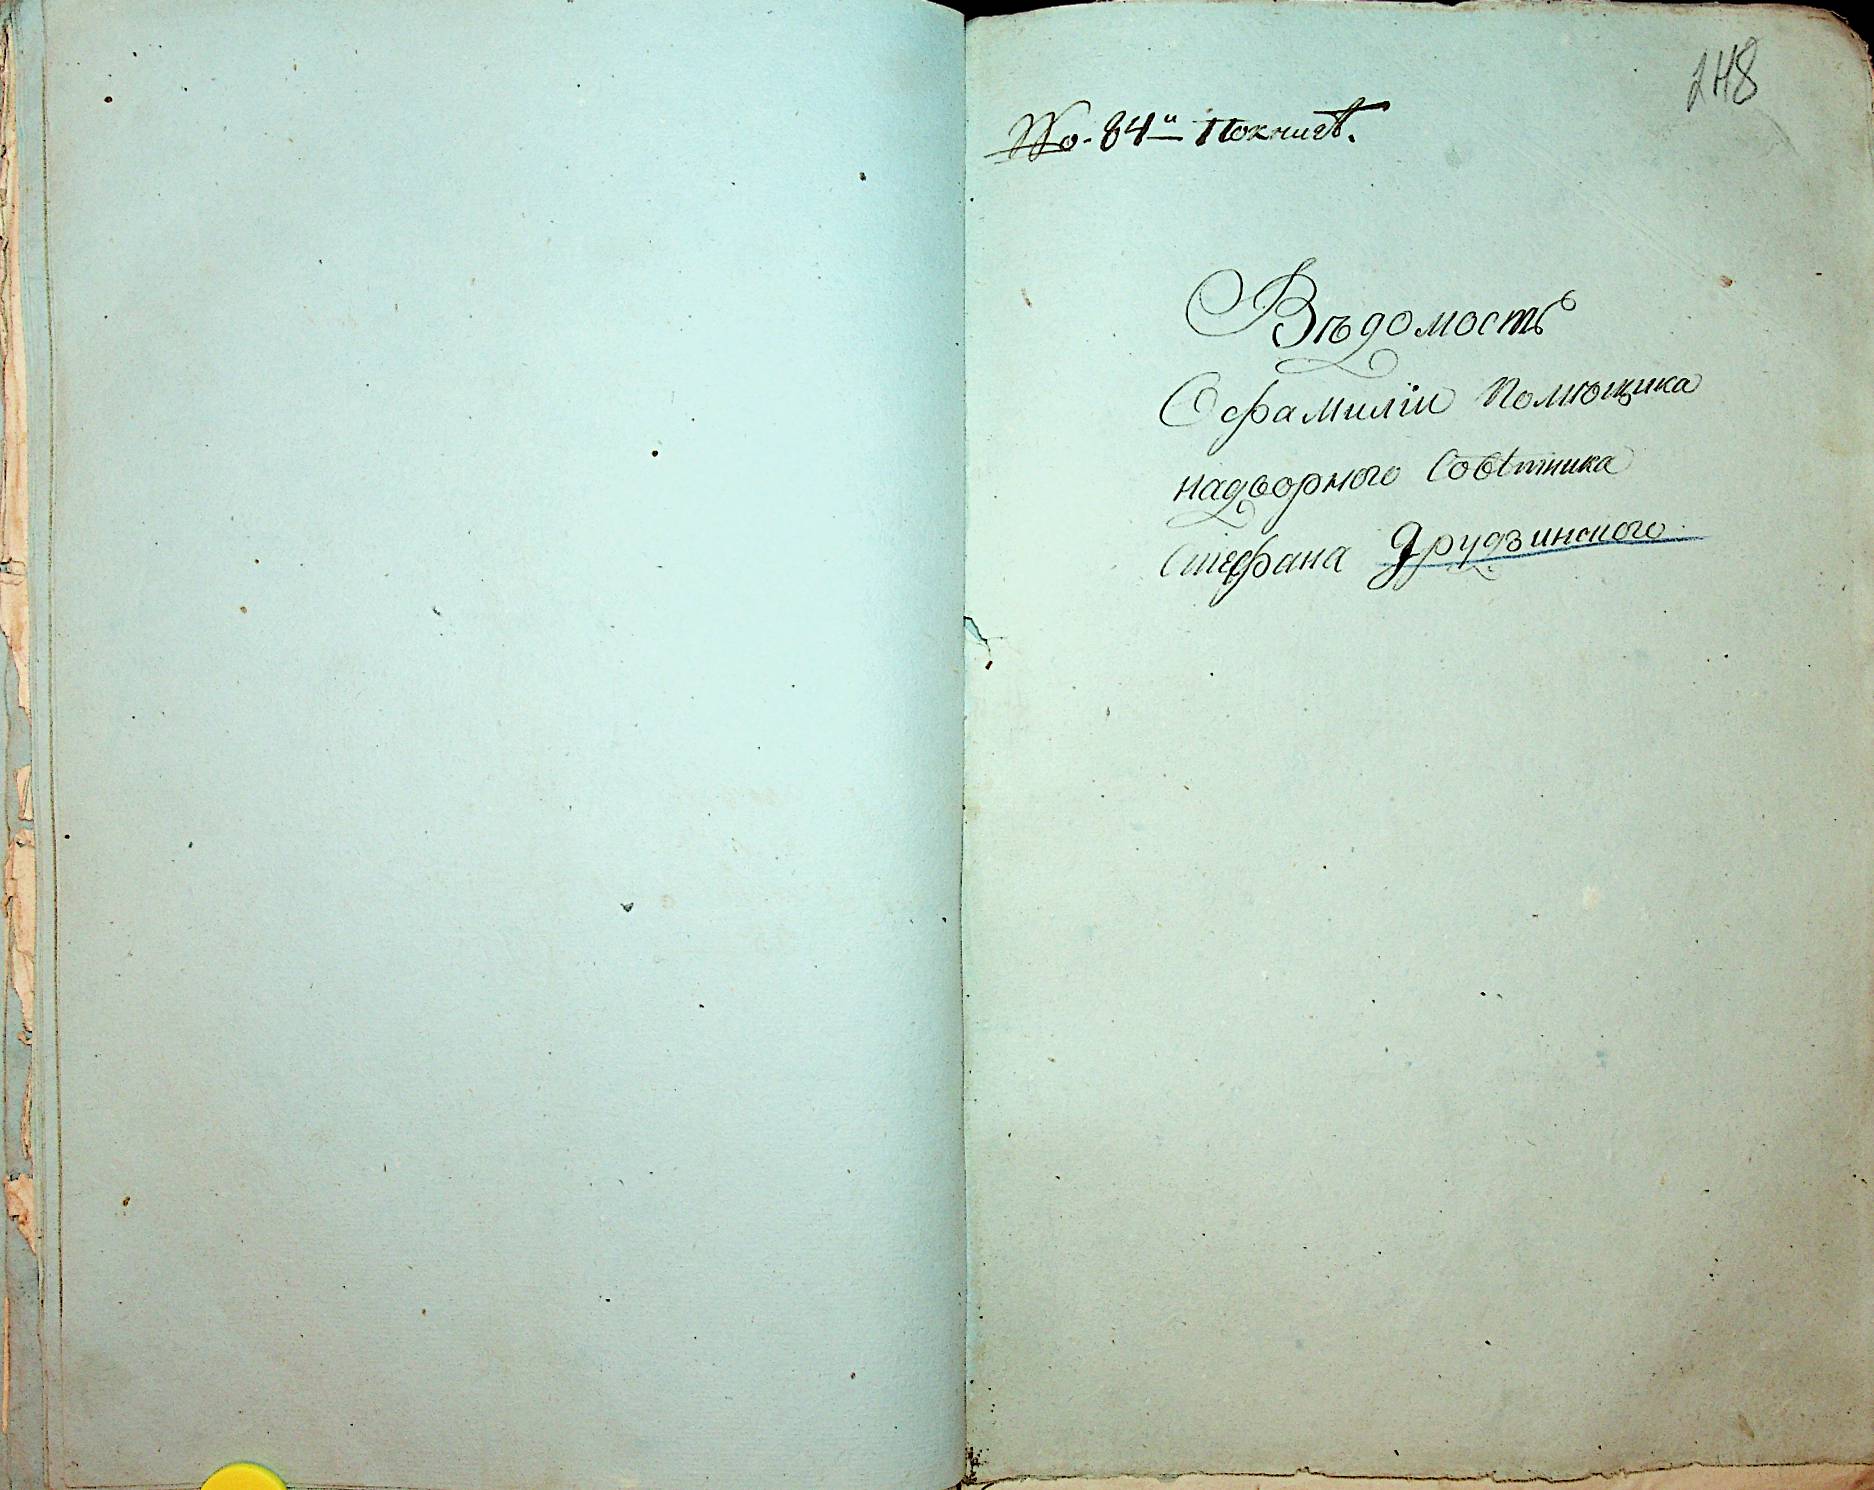 248
No. 84й По книгѣ.
Вѣдомость
О фамиліи Помющика
надворного Совѣтника
Стефана Друдзинского